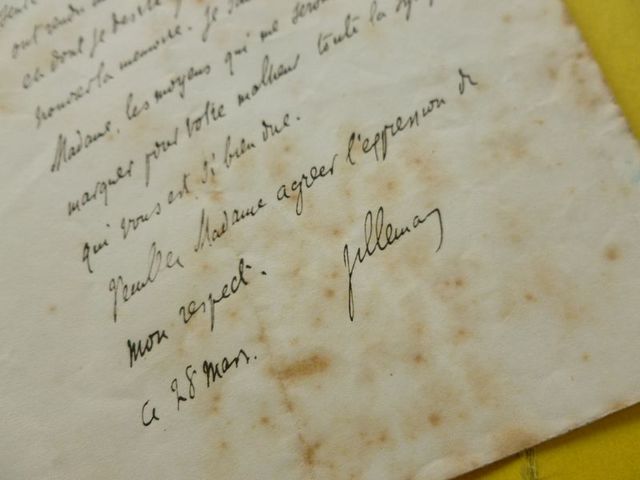 ont rendu
et dont je desire
honorer la memoire. Je
Madame, les moyens qui me seront
marquer pour votre malheur toute la
qui vous est si bien due.
Veuillez Madame agreer l'expression de
mon respect.
Ce 28 Mars.